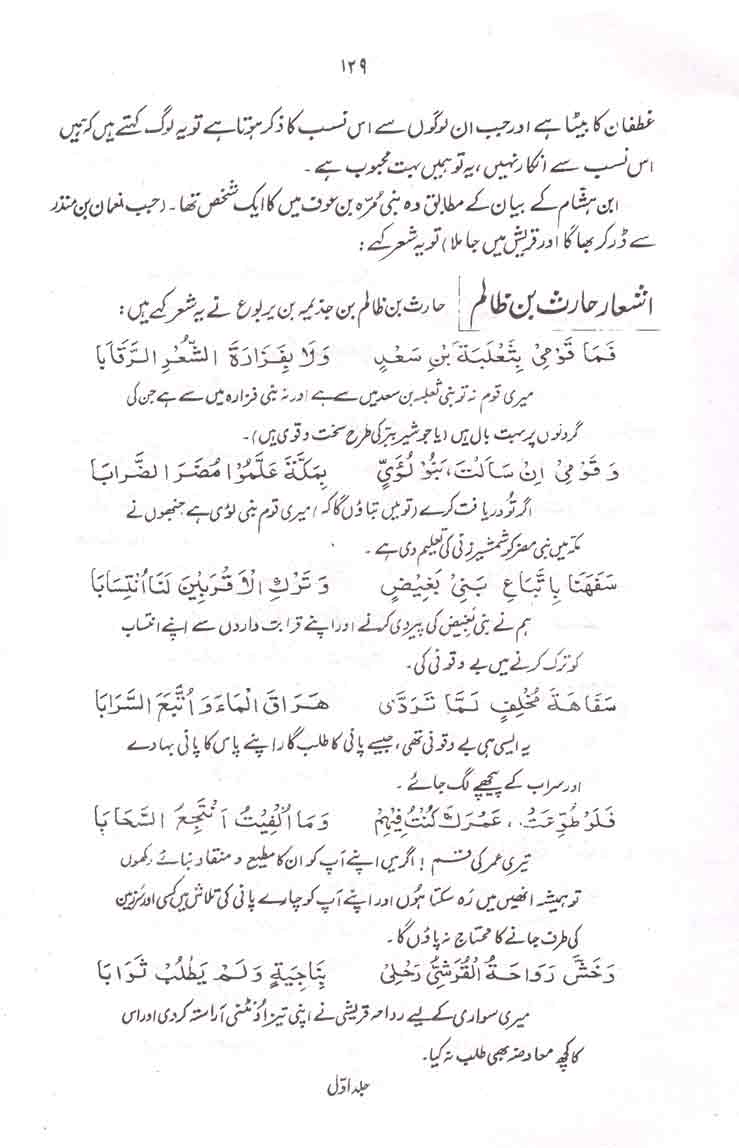 ۱۲۹
غطفان کا بیٹا ہے اور جب ان لوگوں سے اس نسب کا ذکر ہوتا ہے تو یہ لوگ کہتے ہیں کہ ہمیں
اس نسب سے انکار نہیں، یہ تو ہمیں بہت محبوب ہے۔
ابن ہشام کے بیان کے مطابق وہ بنی مُرّہ بن عوف میں کا ایک شخص تھا۔ (جب نعمان بن منذر
سے ڈر کر بھاگا اور قریش میں جا ملا) تو یہ شعر کہے:
اشعار حارث بن ظالم حارث بن ظالم بن جذیمہ بن یربوع نے یہ شعر کہے ہیں:
فَمَا قَوْمِیْ بِثَعْلَبَةَ بْنِ سَعْدٍ وَلَا بِفَزَارَةَ الشُّعْرِ الرَّقَابَا
میری قوم نہ تو بنی ثعلبہ بن سعد میں سے ہے اور نہ بنی فزارہ میں سے ہے جن کی
گردنوں پر بہت بال ہیں (یا جو شیر ببر کی طرح سخت و قوی ہیں)۔
وَقَوْمِیْ اِنْ سَاَلْتَ، بَنُوْ لُؤَیٍّ بِمَكَّةَ عَلَّمُوْا مُضَرَ الضَّرَابَا
اگر تُو دریافت کرے (تو میں بتاؤں گا کہ) میری قوم بنی لوٴی ہے جنھوں نے
مکہ میں بنی مضر کو شمشیر زنی کی تعلیم دی ہے۔
سَفِهْنَا بِاتِّبَاعِ بَنِیْ بَغِیْضٍ وَتَرْكِ الْاَقْرَبِیْنَ لَنَا انْتِسَابَا
ہم نے بنی بغیض کی پیروی کرنے اور اپنے قرابت داروں سے اپنے انتساب
کو ترک کرنے میں بے وقوفی کی۔
سَفَاهَةَ مُخْلِفٍ لَمَّا تَرَدّٰی هَرَاقَ الْمَاءَ وَاتَّبَعَ السَّرَابَا
یہ ایسی ہی بے وقوفی تھی، جیسے پانی کا طلب گار اپنے پاس کا پانی بہا دے
اور سراب کے پیچھے لگ جائے۔
فَلَوْ طُوِّعْتُ، عَمْرَكَ كُنْتُ فِیْهِمْ وَمَا اُلْفِیْتُ اَنْتَجِعُ السَّحَابَا
تیری عمر کی قسم! اگر میں اپنے آپ کو ان کا مطیع و منقاد بنائے رکھوں
تو ہمیشہ انھیں میں رہ سکتا ہوں اور اپنے آپ کو چارے پانی کی تلاش میں کسی اور سرزمین
کی طرف جانے کا محتاج نہ پاؤں گا۔
وَخَشَّ رَوَاحَةُ الْقُرَشِیُّ رَحْلِیْ بِنَاجِیَةٍ وَلَمْ یَطْلُبْ ثَوَابَا
میری سواری کے لیے رواحہ قریشی نے اپنی تیز اونٹنی آراستہ کر دی اور اس
کا کچھ معاوضہ بھی طلب نہ کیا۔
جلد اوّل